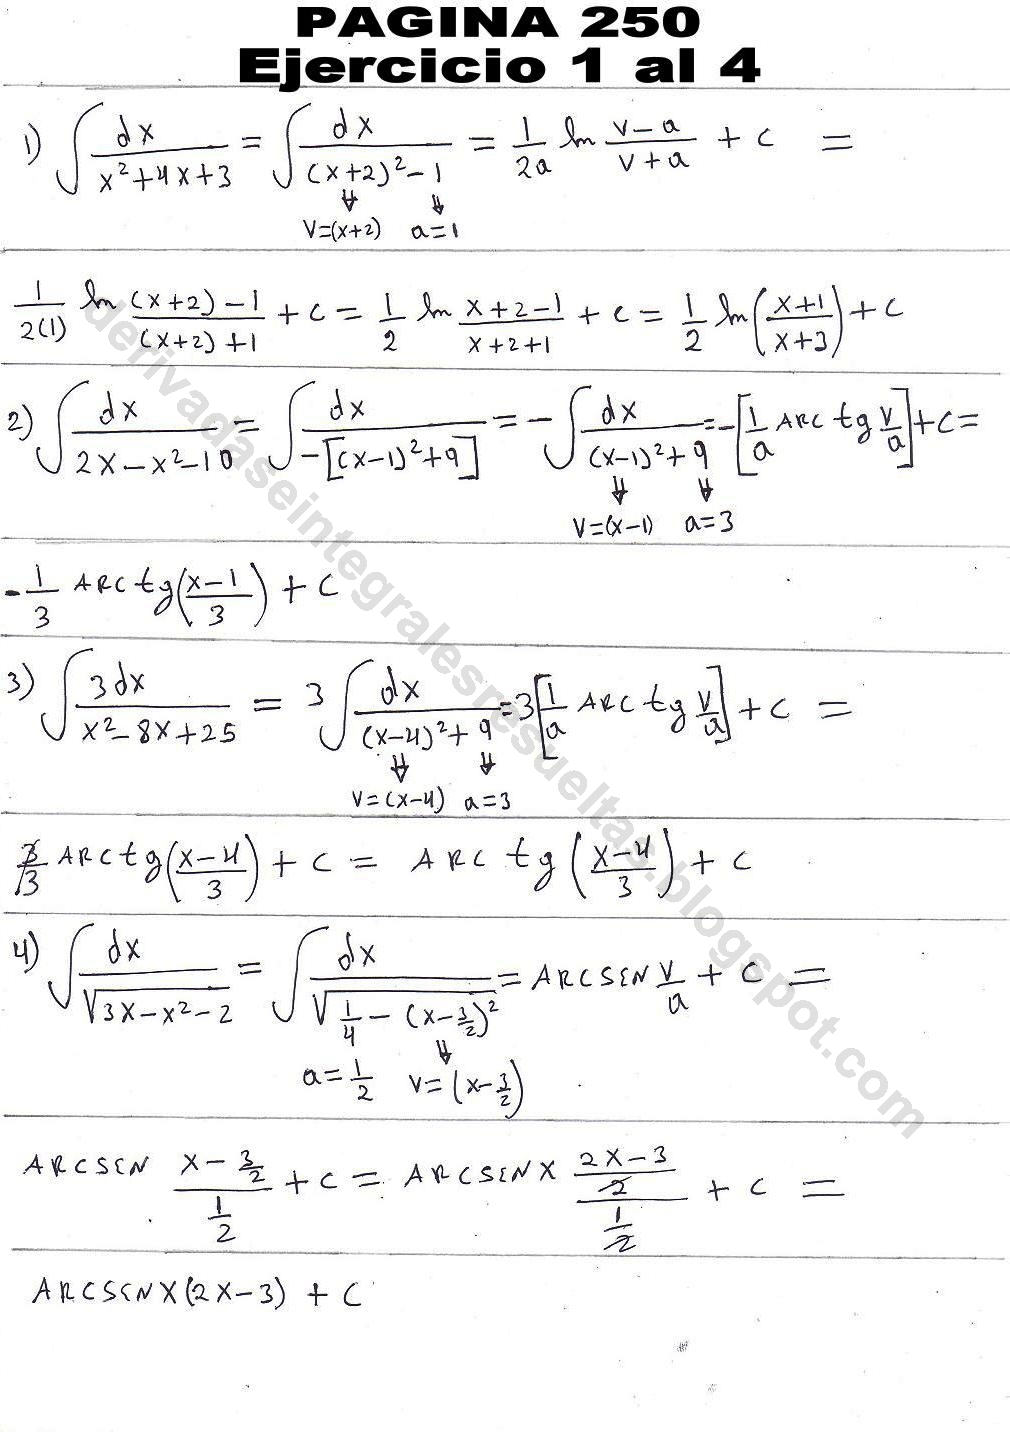 PAGINA 250
Ejercicio 1 al 4
1) ∫ dx/(x²+4x+3) = ∫ dx/((x+2)²-1) = 1/2a ln (v-a)/(v+a) + C =
v=(x+2) a=1
1/2(1) ln ((x+2)-1)/((x+2)+1) + C = 1/2 ln (x+2-1)/(x+2+1) + C = 1/2 ln ((x+1)/(x+3)) + C
2) ∫ dx/(2x-x²-10) = ∫ dx/(-[(x-1)²+9]) = -∫ dx/((x-1)²+9) = -[1/a ARC tg v/a] + C =
v=(x-1) a=3
-1/3 ARC tg ((x-1)/3) + C
3) ∫ 3dx/(x²-8x+25) = 3∫ dx/((x-4)²+9) = 3[1/a ARC tg v/a] + C =
v=(x-4) a=3
3/3 ARC tg ((x-4)/3) + C = ARC tg ((x-4)/3) + C
4) ∫ dx/√(3x-x²-2) = ∫ dx/√(1/4-(x-3/2)²) = ARCSEN v/a + C =
a=1/2 v=(x-3/2)
ARCSEN (x-3/2)/(1/2) + C = ARCSEN x ((2x-3)/2)/(1/2) + C =
ARCSEN x(2x-3) + C
derivadaseintegralesresueltas.blogspot.com